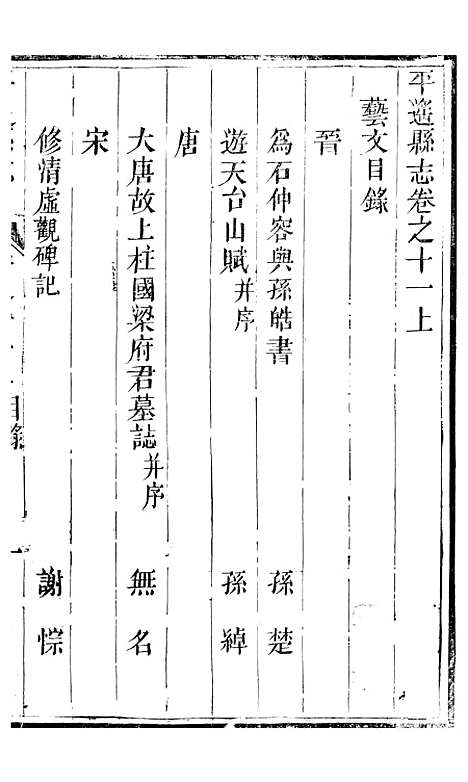 平遥縣志卷之十一上
藝文目錄
晉
為石仲容與孫皓書 孫楚
遊天台山賦并序 孫綽
唐
大唐故上柱國梁府君墓誌并序 無名
宋
修清虛觀碑記 謝悰
目錄